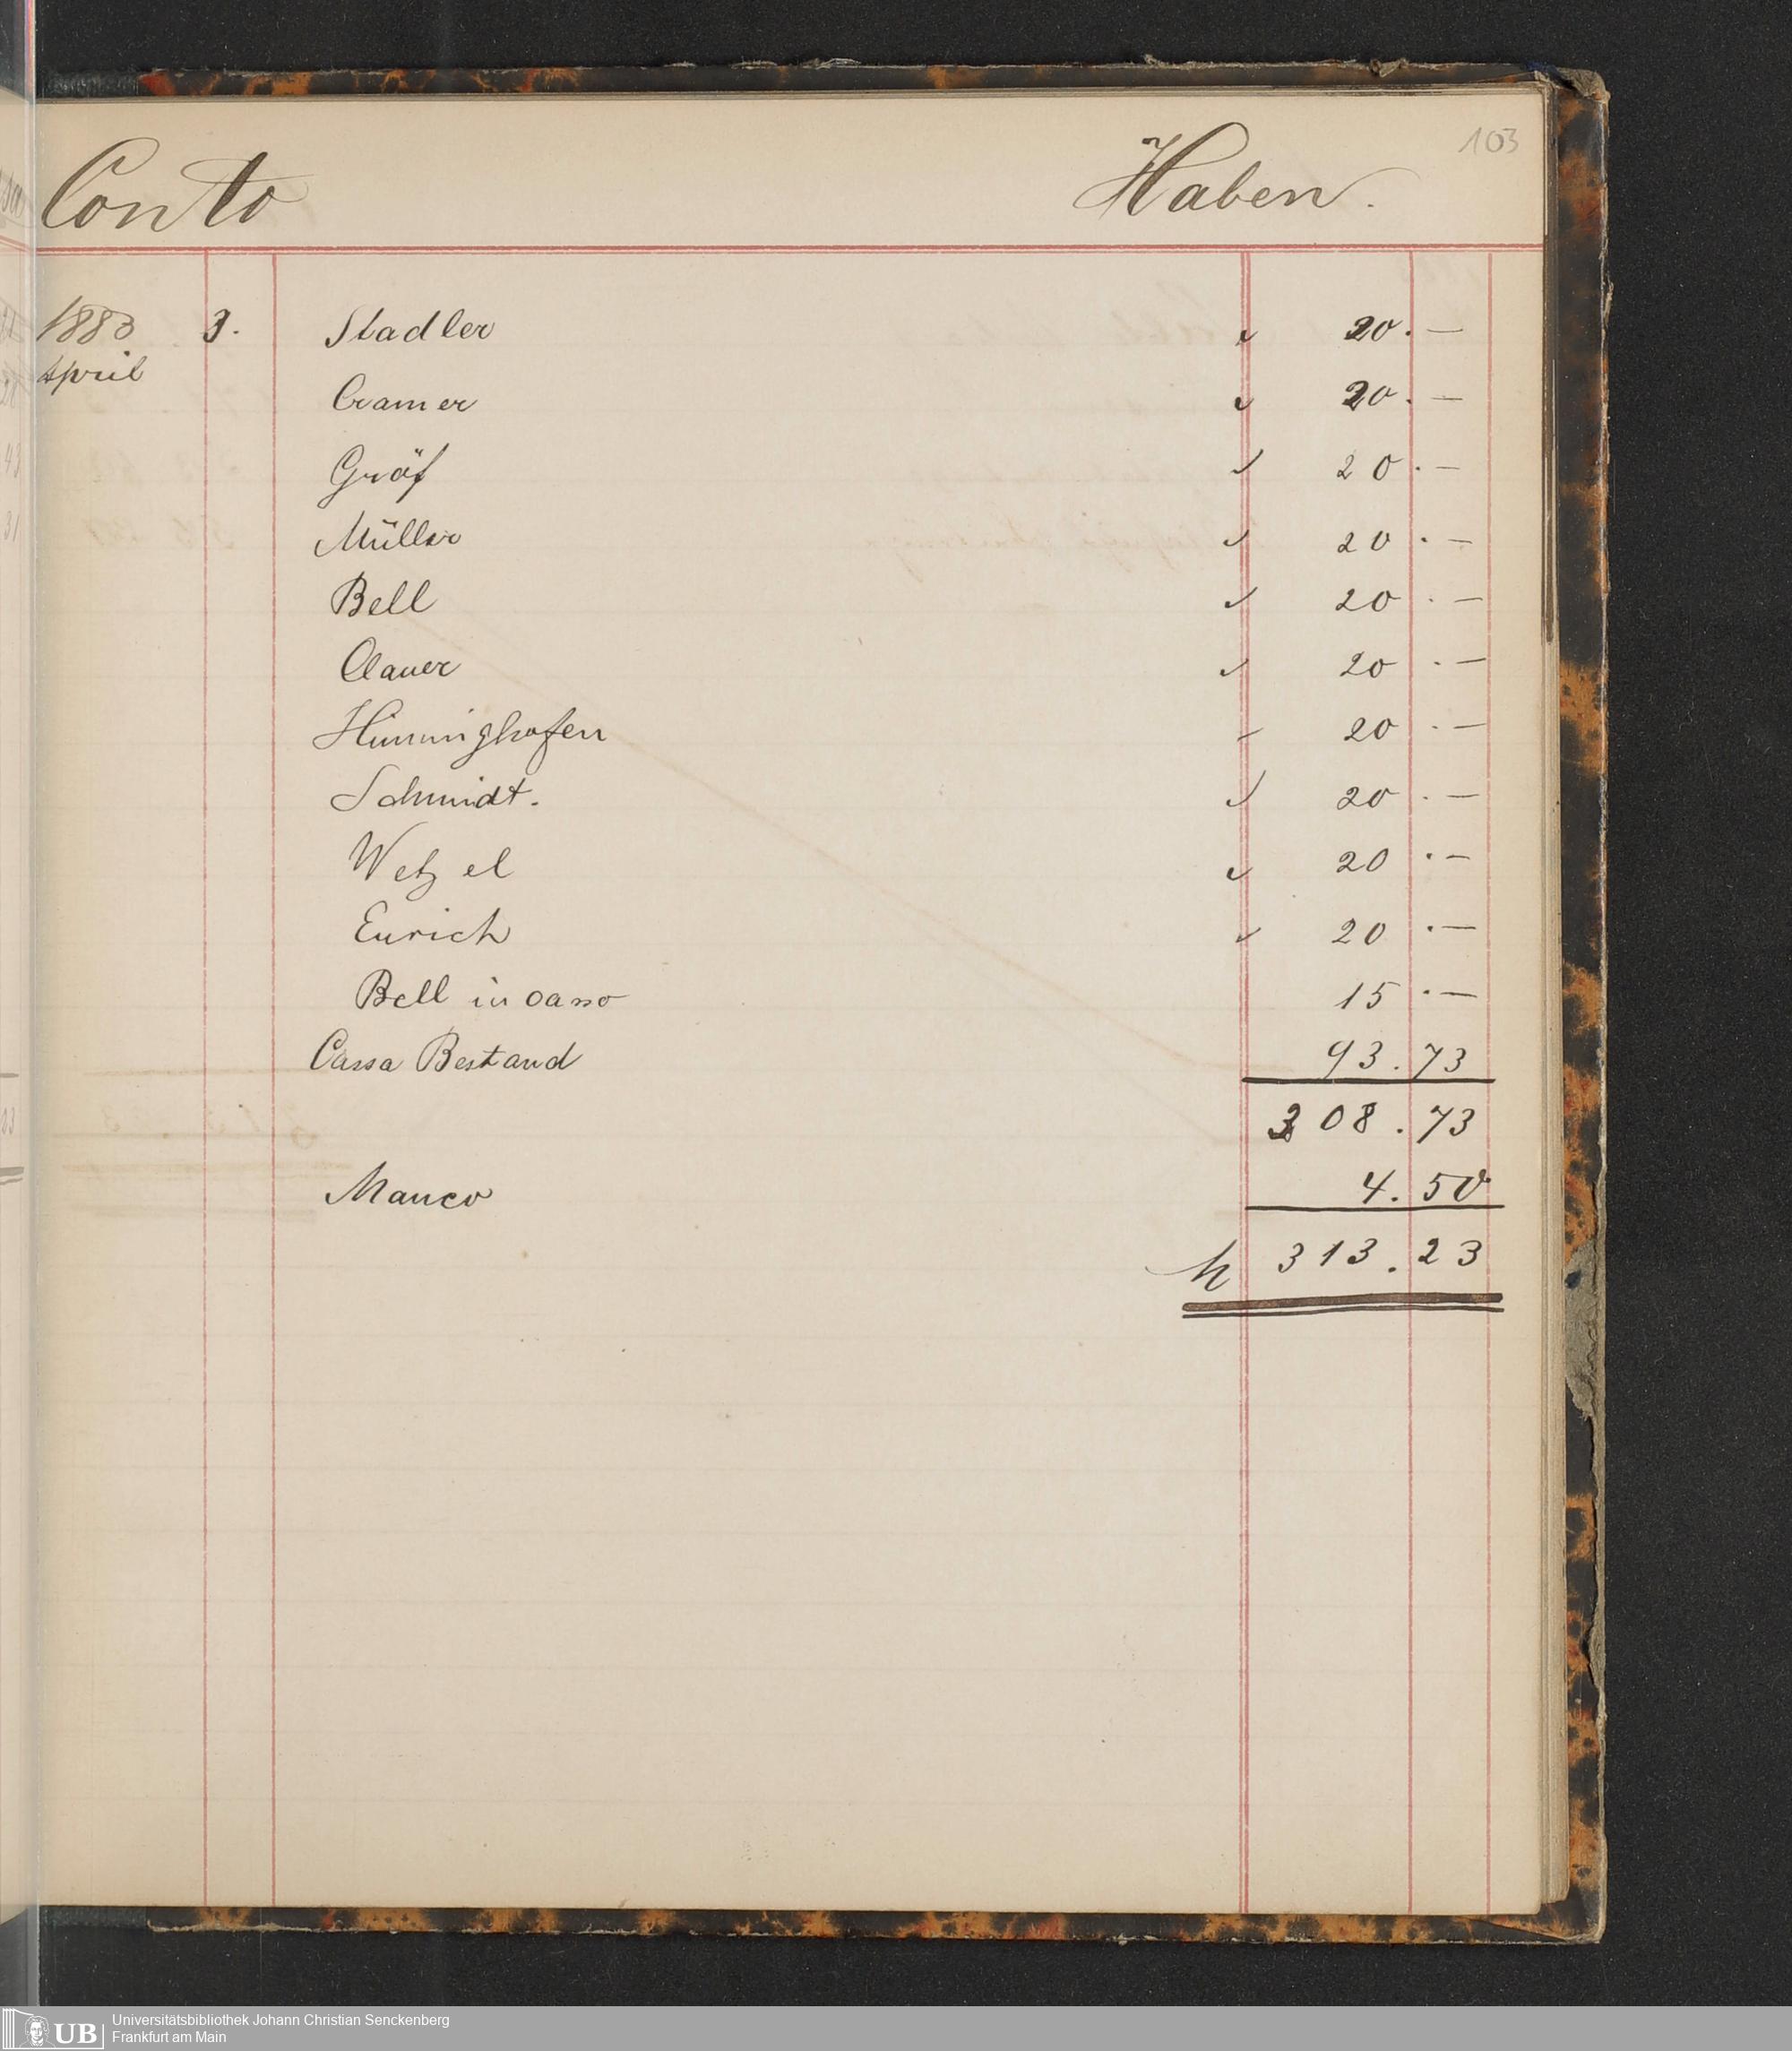 103
Conto Haben.
1883 3. Stadler 20. —
April
Cramer 20. —
Gräf 20. —
Müller 20. —
Bell 20. —
Clauer 20. —
Himminghofen 20. —
Schmidt. 20. —
Wetzel 20. —
Eurich 20. —
Bell in casso 15. —
Cassa Bestand 93. 73
308. 73
Manco 4. 50
313. 23
UB
Universitätsbibliothek Johann Christian Senckenberg
Frankfurt am Main